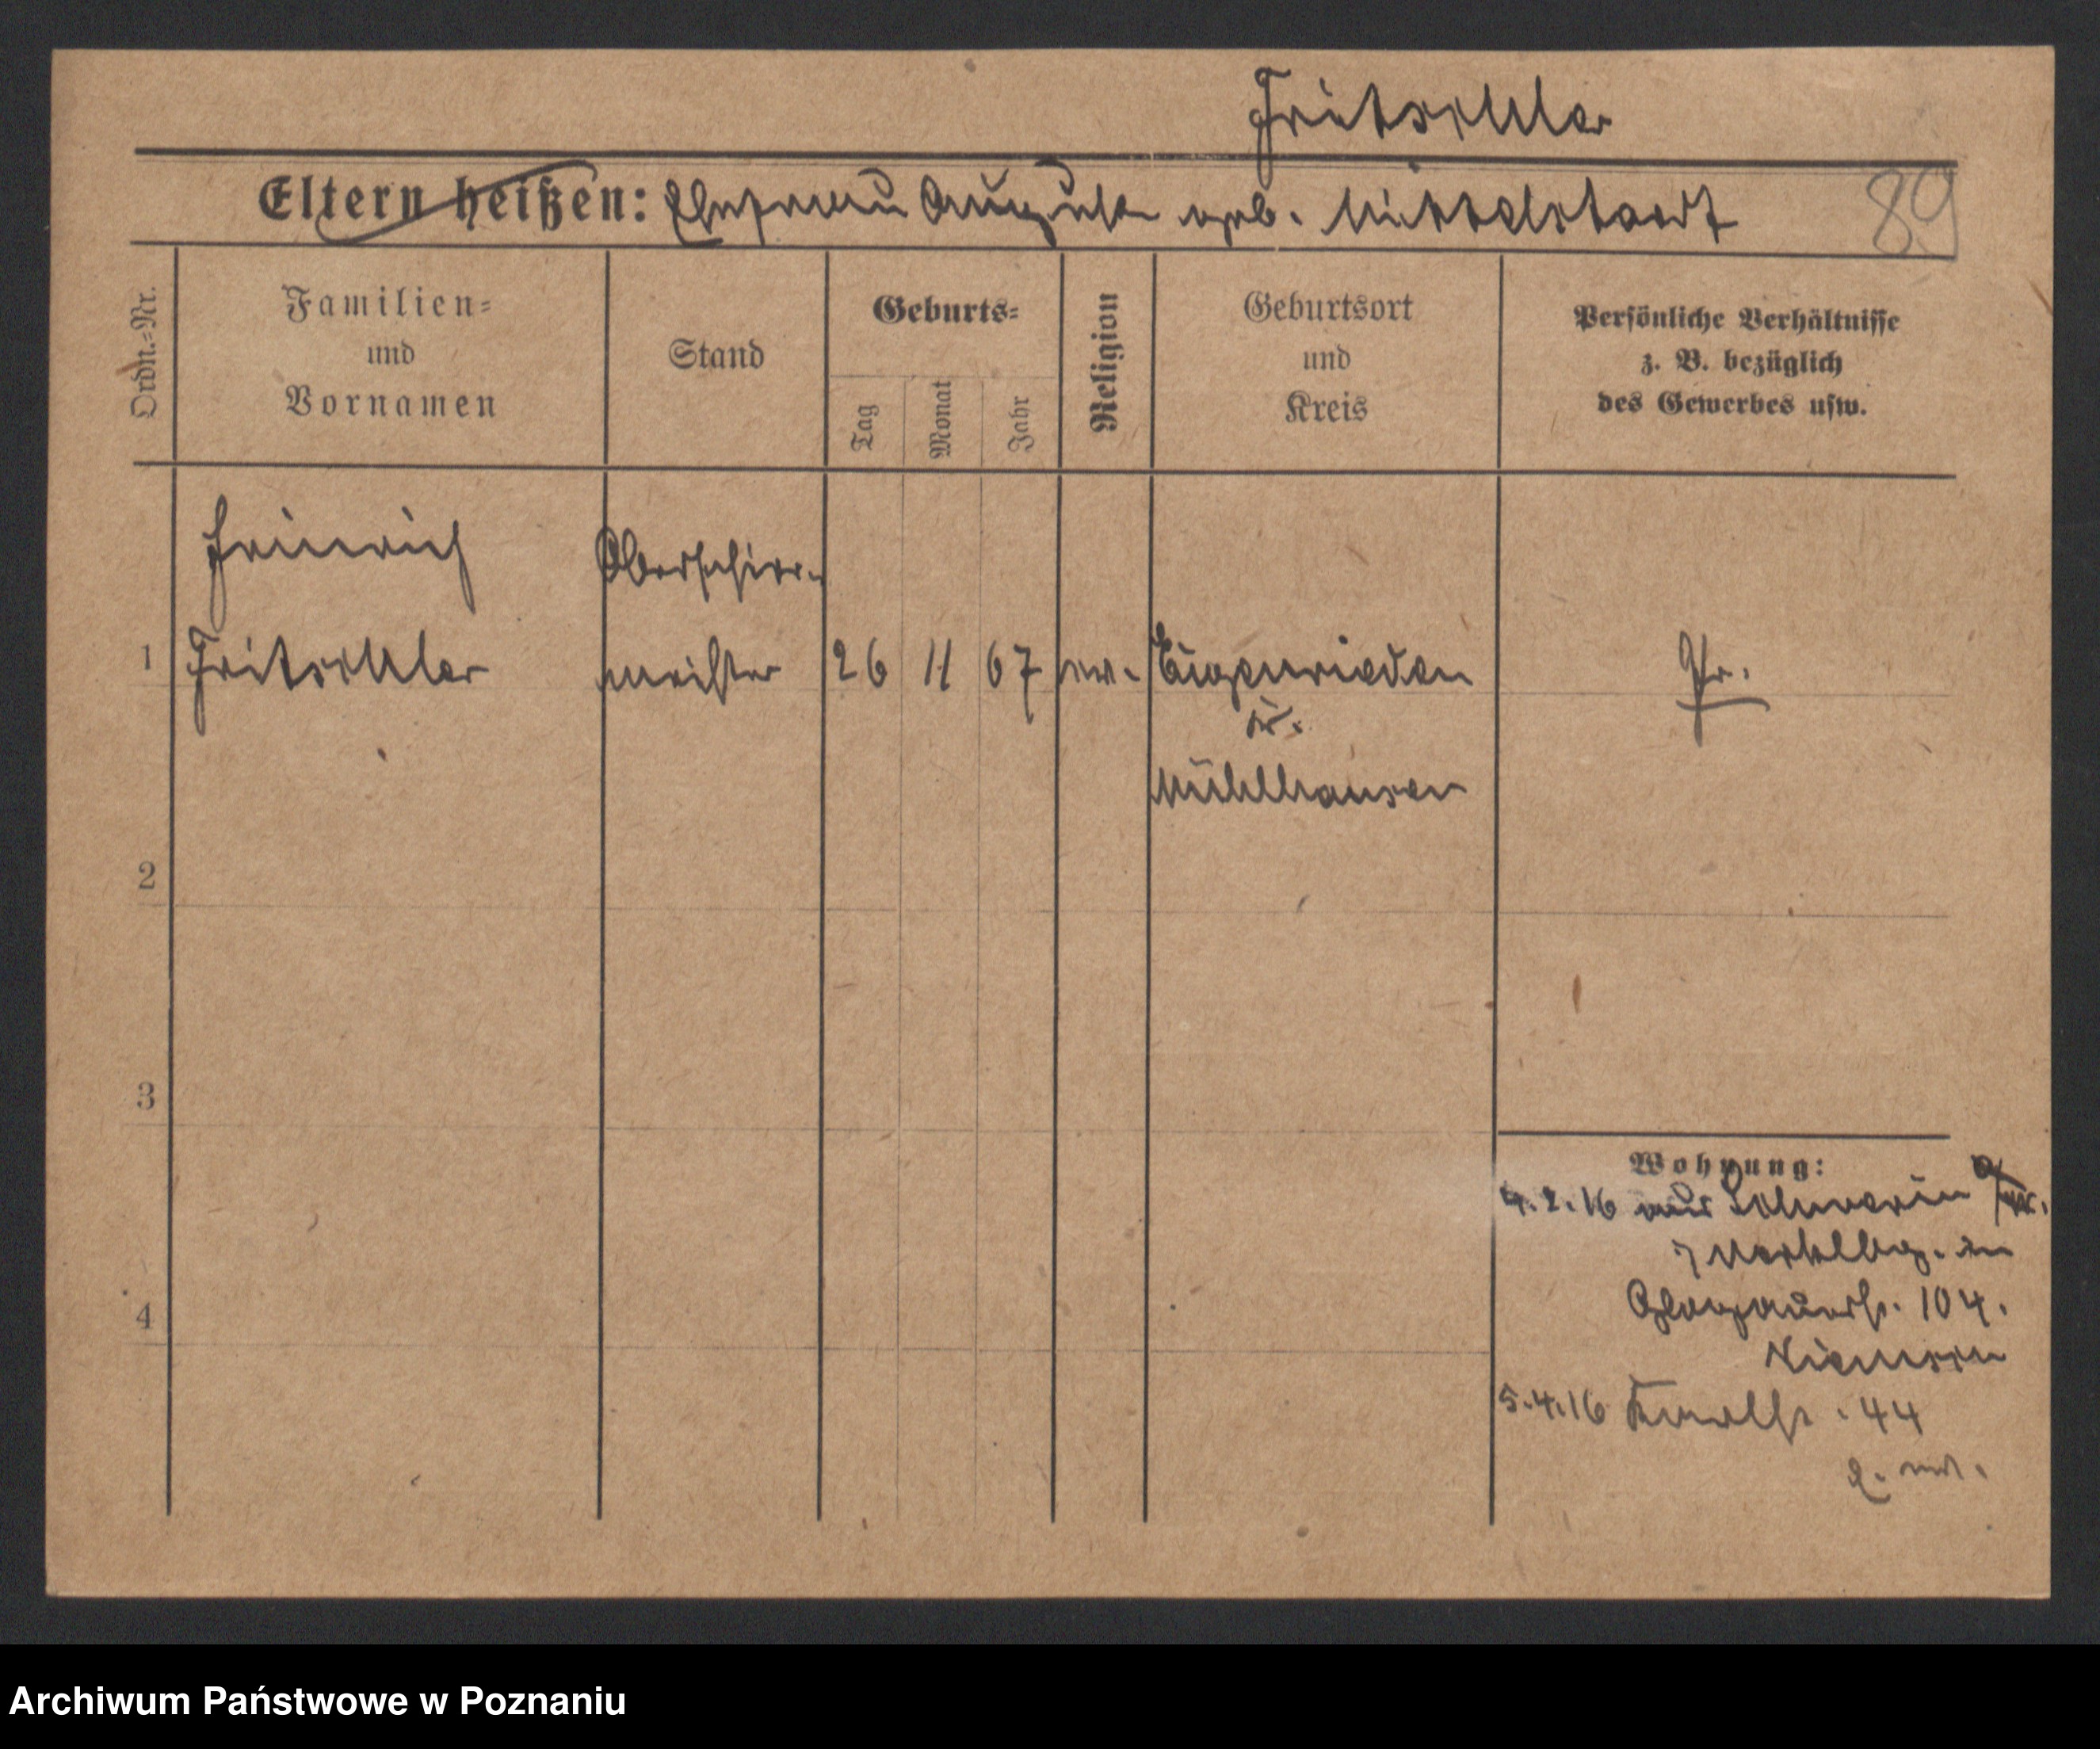 Fritschler
Eltern heißen: Ehefrau Auguste geb. Mittelstaedt
89
Ordn.=Nr.
Familien=
und
Vornamen
Stand
Geburts=
Tag
Monat
Jahr
Religion
Geburtsort
und
Kreis
Persönliche Verhältnisse
z. B. bezüglich
des Gewerbes usw.
Heinrich Oberschirr-
1 Fritschler meister 26 11 67 ev. Eigenrieden Pr.
Kr.
Mühlhausen
2
3
4
Wohnung:
4.2.16 aus Schwerin a/W.
Glogauerstr. 104.
5.4.16 44
Archiwum Państwowe w Poznaniu